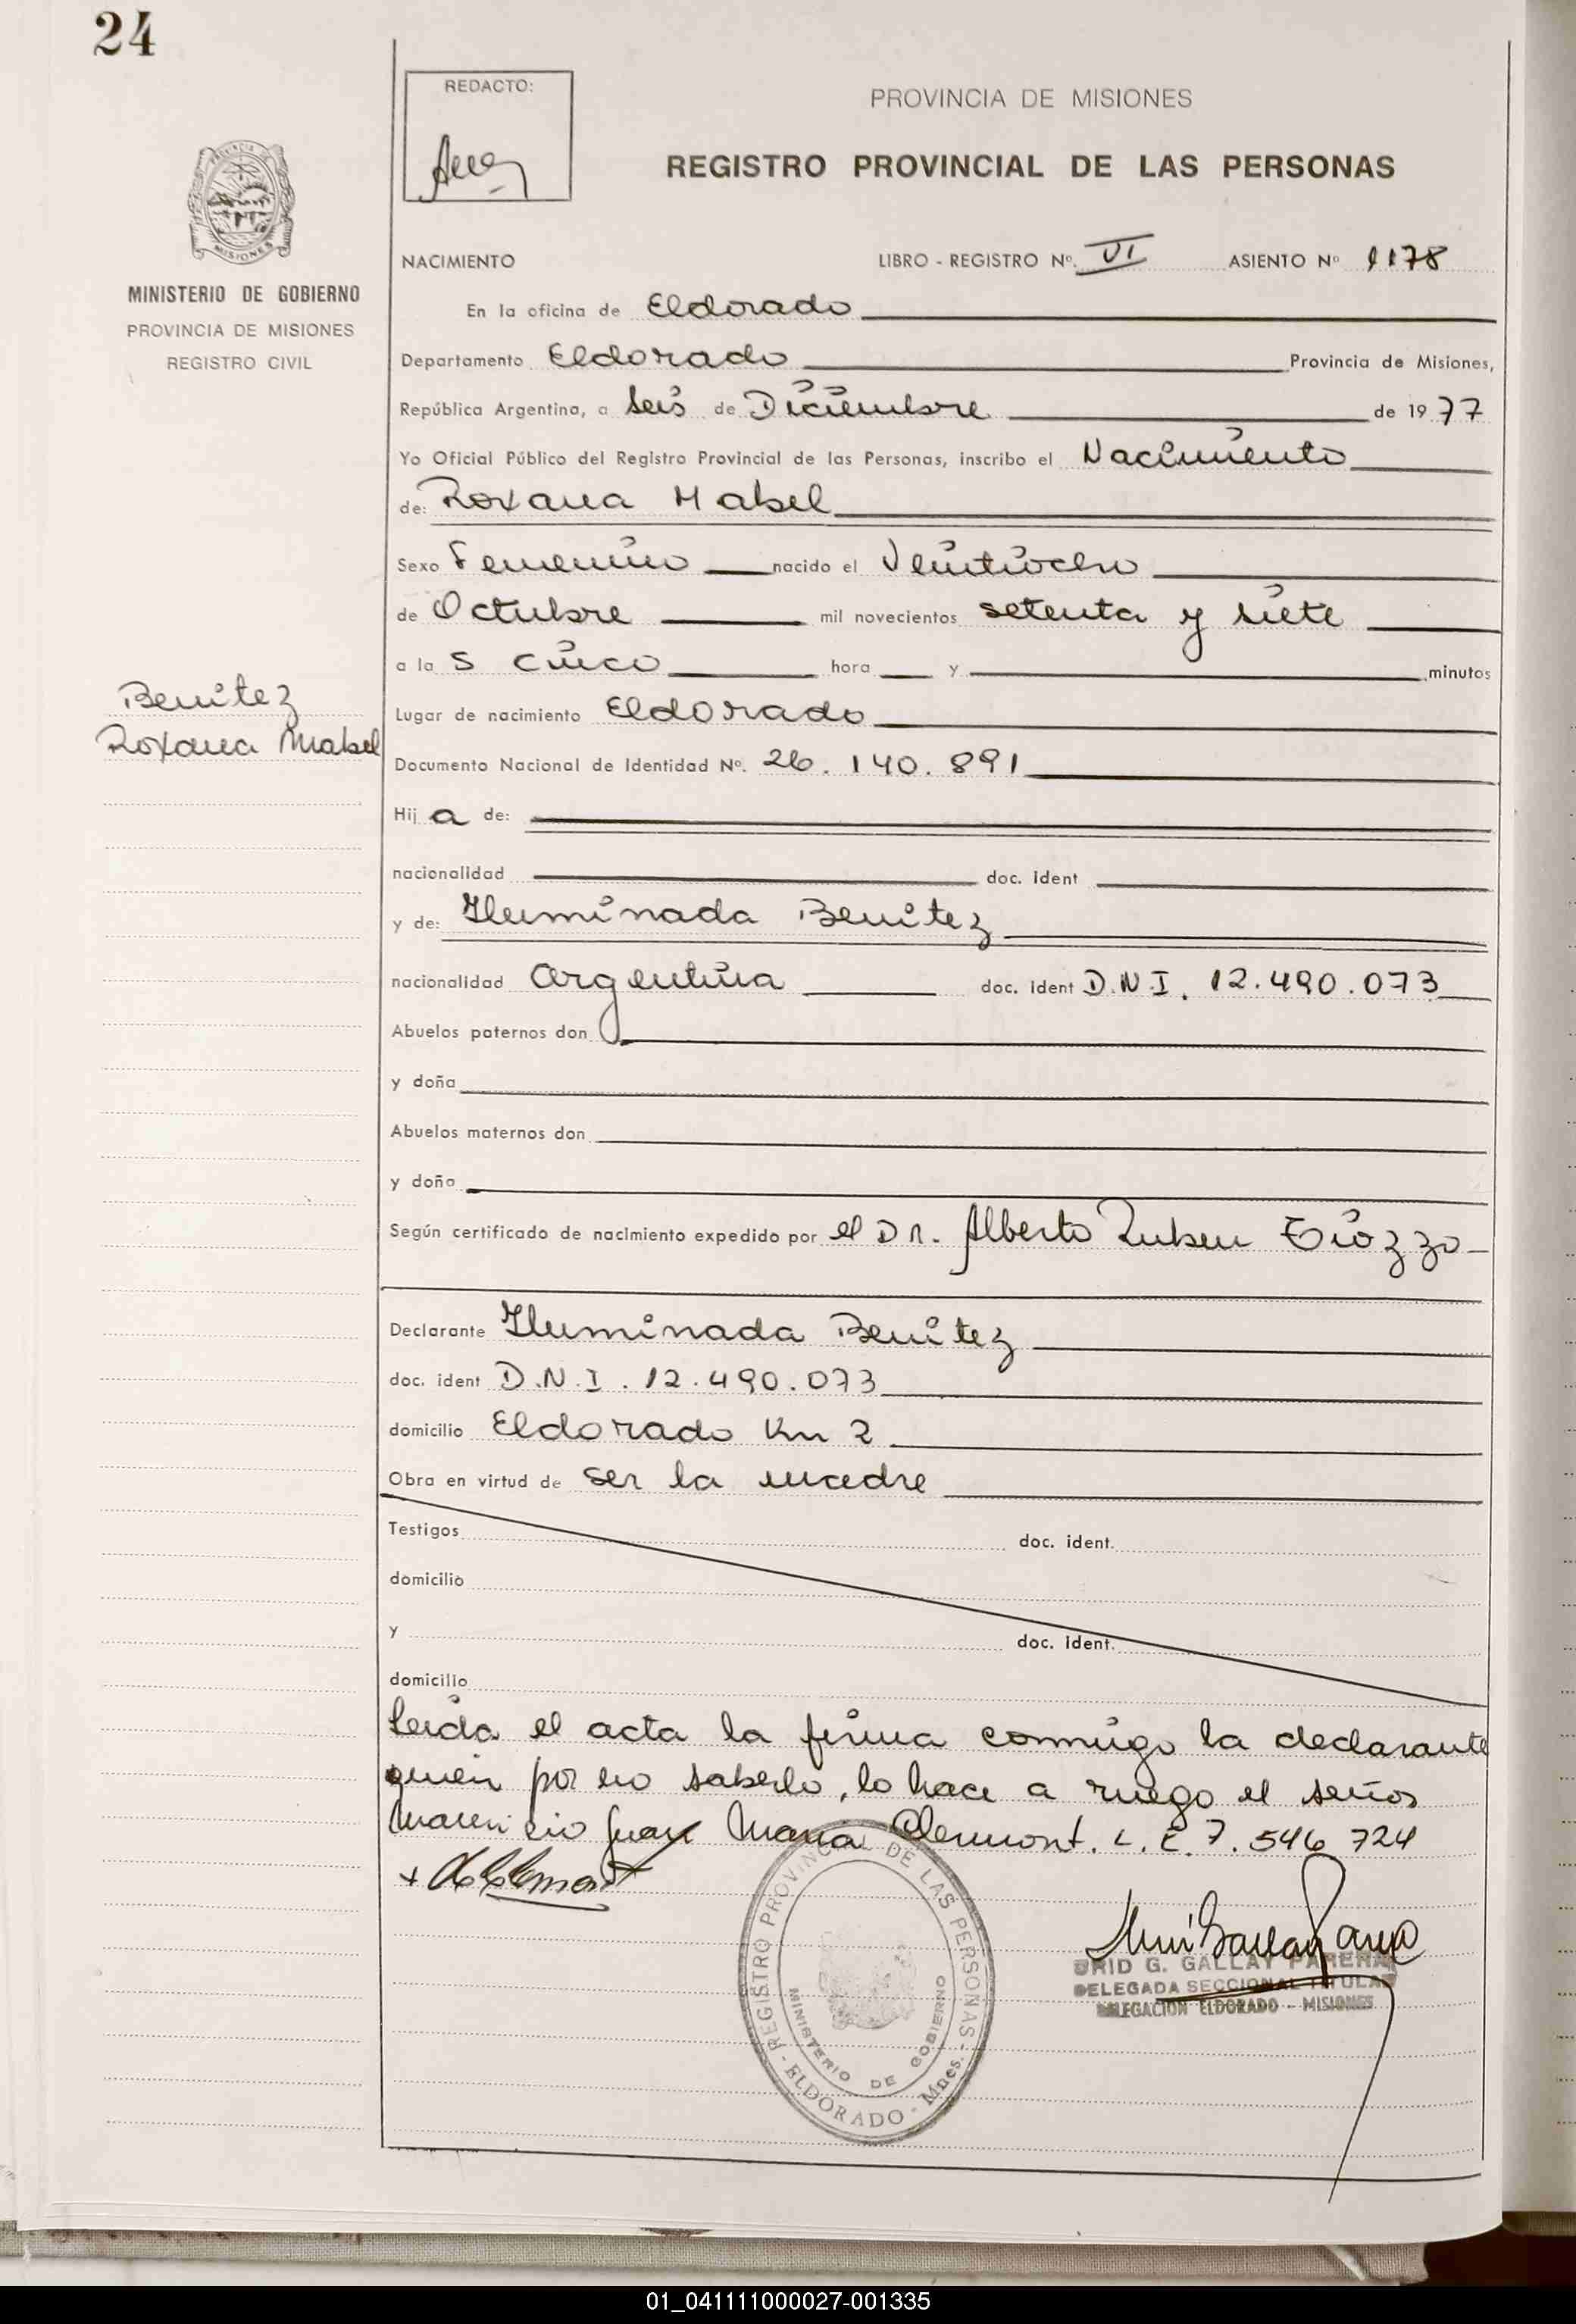 24
REDACTO:
PROVINCIA DE MISIONES
REGISTRO PROVINCIAL DE LAS PERSONAS
MISIONES
MINISTERIO DE GOBIERNO
PROVINCIA DE MISIONES
REGISTRO CIVIL
NACIMIENTO LIBRO - REGISTRO Nº. VI ASIENTO Nº 1178
En la oficina de Eldorado
Departamento Eldorado Provincia de Misiones,
República Argentina, a seis de Diciembre de 1977
Yo Oficial Público del Registro Provincial de las Personas, inscribo el Nacimiento
de: Roxana Mabel
Sexo Femenino nacido el Veintiocho
de Octubre mil novecientos setenta y siete
a la s cinco hora y minutos
Benitez
Roxana Mabel
Lugar de nacimiento Eldorado
Documento Nacional de Identidad Nº. 26.140.891
Hij a de:
nacionalidad doc. ident
y de: Iluminada Benitez
nacionalidad argentina doc. ident D.N.I. 12.490.073
Abuelos paternos don
y doña
Abuelos maternos don
y doña
Según certificado de nacimiento expedido por el Dr. Alberto Ruben
Declarante Iluminada Benitez
doc. ident D.N.I. 12.490.073
domicilio Eldorado Km 2
Obra en virtud de ser la madre
Testigos doc. ident.
domicilio
y doc. ident.
domicilio
Leida el acta la firma conmigo la declarante
quien por no saberlo, lo hace a ruego el señor
Juan Maria Clermont. L.E. 7.546.724
REGISTRO PROVINCIAL DE LAS PERSONAS - ELDORADO - Mnes. -
MINISTERIO DE GOBIERNO
G. GALLAY PARERA
DELEGADA SECCIONAL TITULAR
DELEGACION ELDORADO - MISIONES
01_041111000027-001335